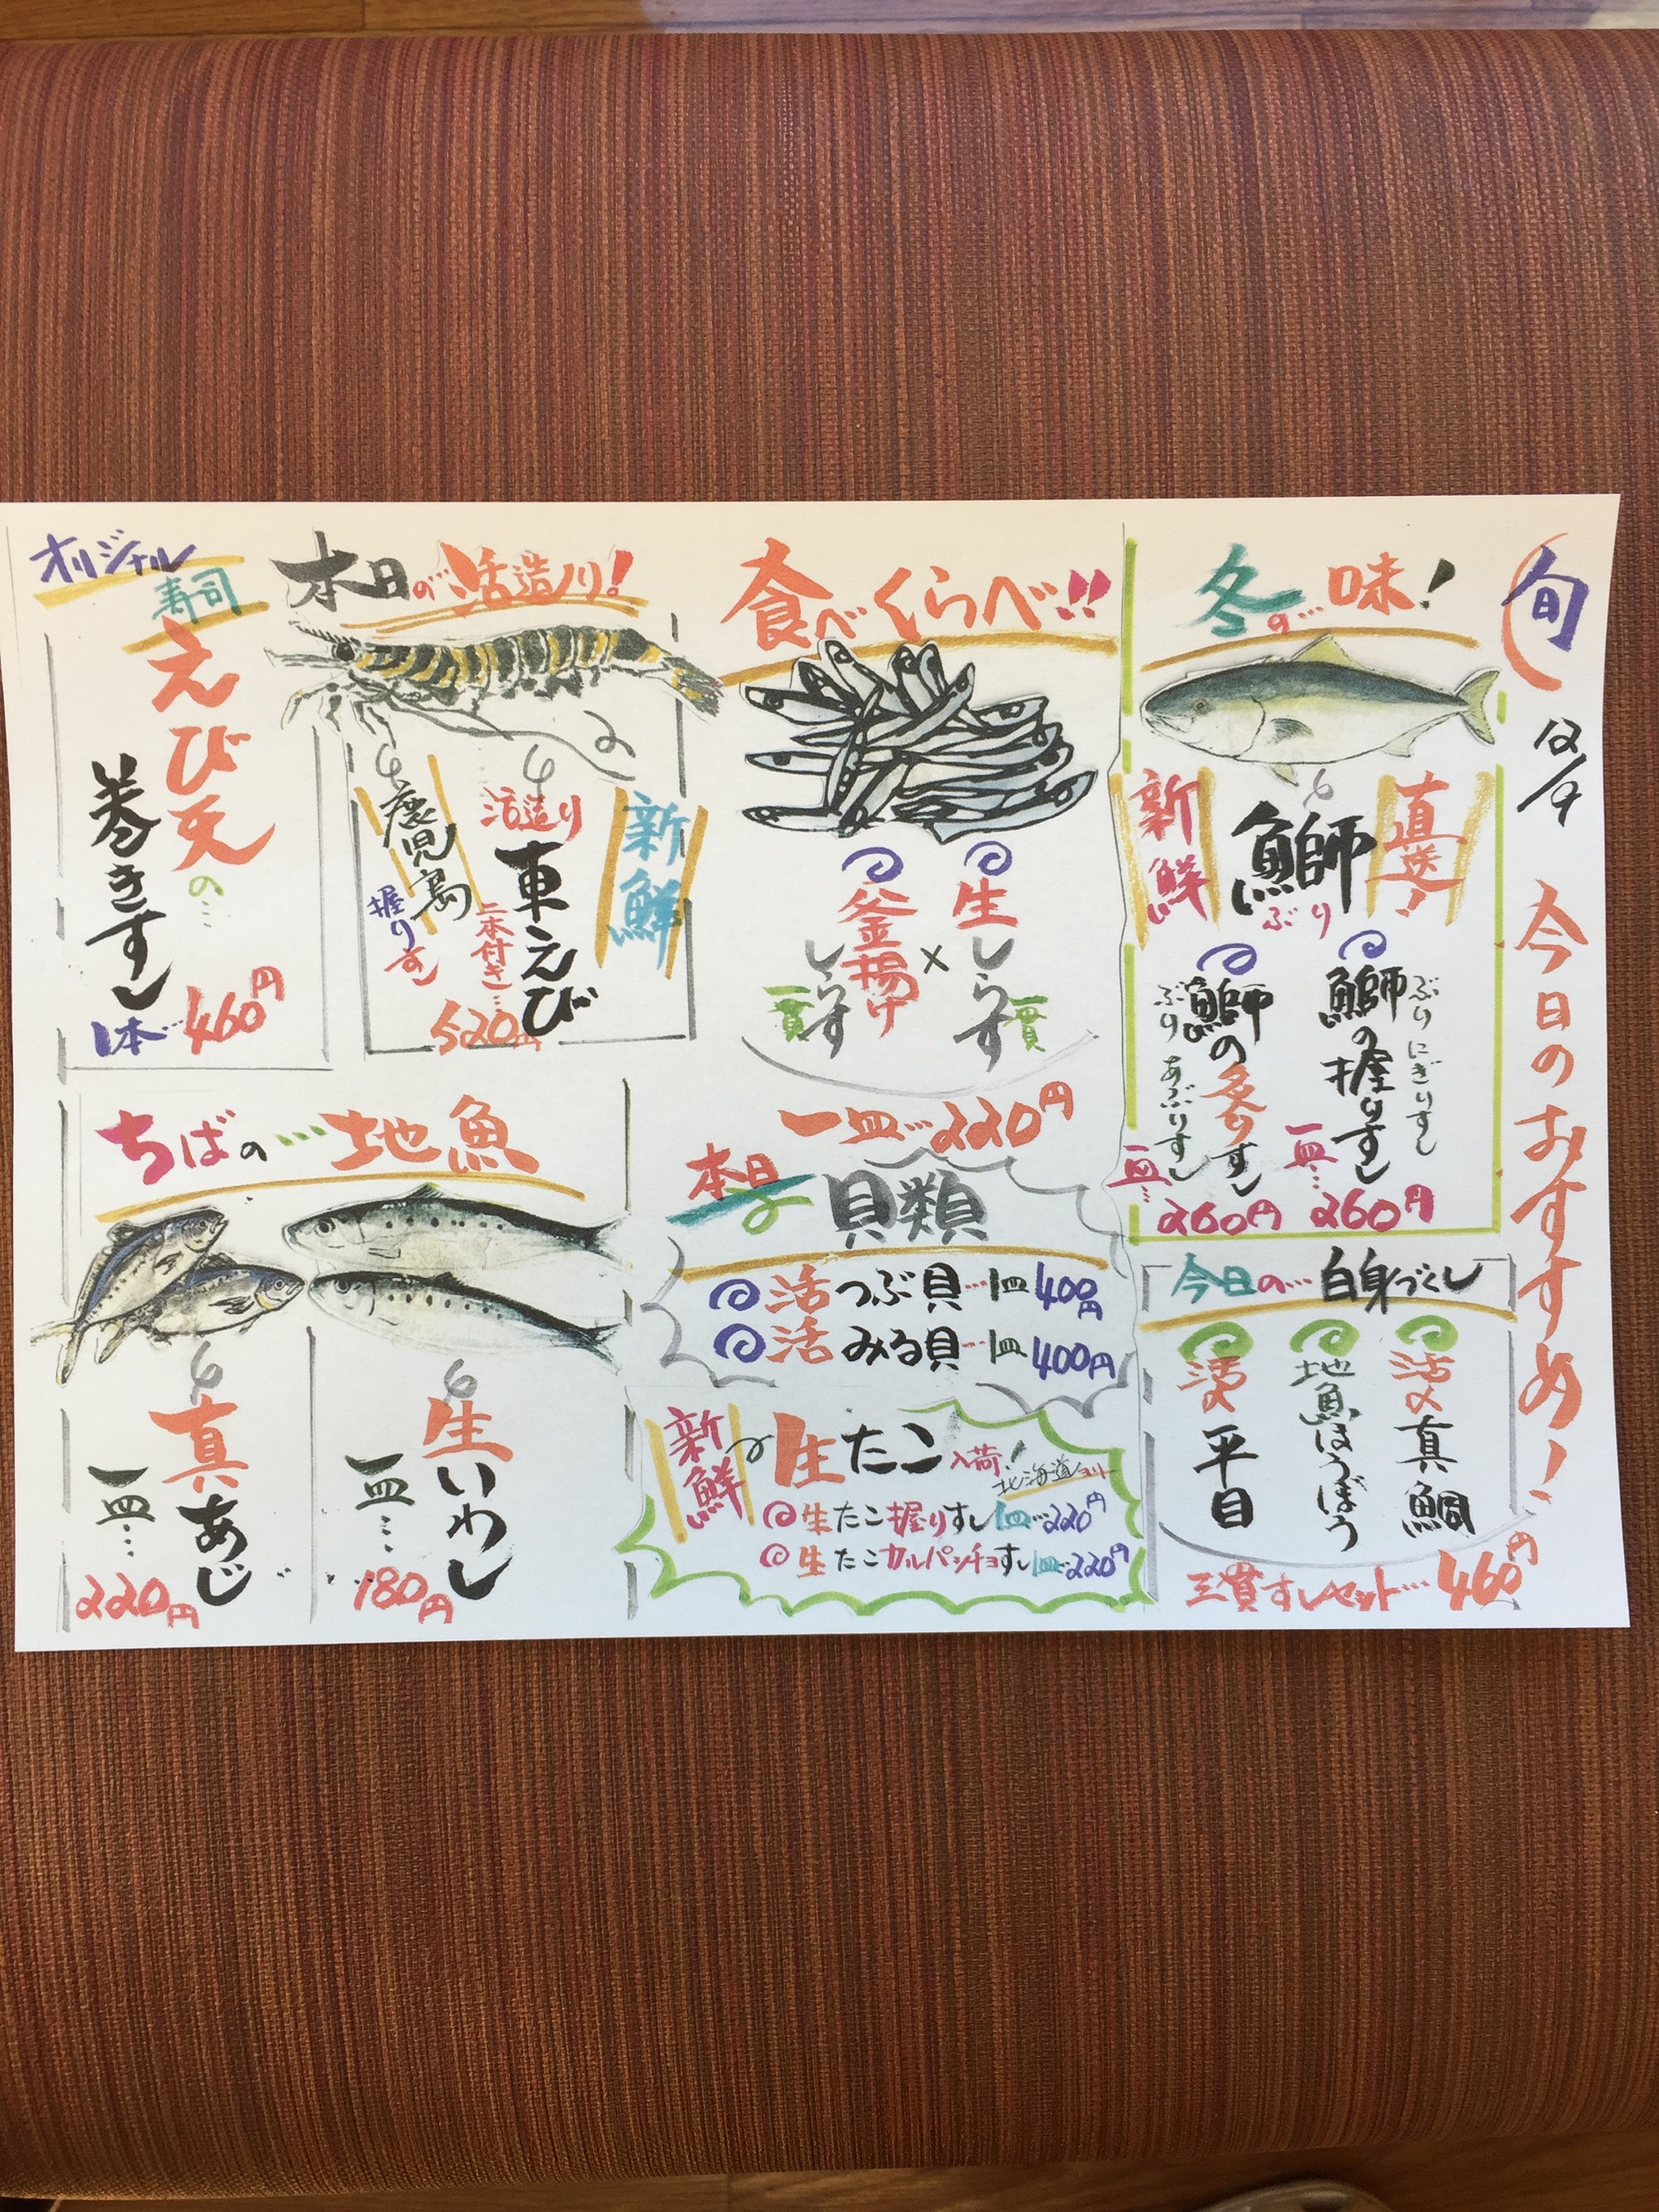 旬
12/9
今日のおすすめ！
冬の味！
直送！
鰤
ぶり
新鮮
ぶりにぎりすし
鰤の握りすし
一皿…
260円
ぶりあぶりすし
鰤の炙りすし
一皿…
260円
今日の…白身づくし
活〆真鯛
地魚ほうぼう
活〆平目
三貫すしセット…460円
食べくらべ!!
生しらす
一貫
×
釜揚げ
しらす
一貫
一皿…220円
本日
貝類
活つぶ貝…一皿400円
活みる貝…一皿400円
新鮮
生たこ入荷！
北海道ヨリ
生たこ握りすし一皿…220円
生たこカルパッチョすし一皿…220円
本日の活造り！
新鮮
活造り
車えび
二本付き…
520円
鹿児島
握りす
オリジナル
寿司
えび天の…
巻きすし
1本…460円
ちばの…地魚
生いわし
一皿…
180円
真あじ
一皿…
220円